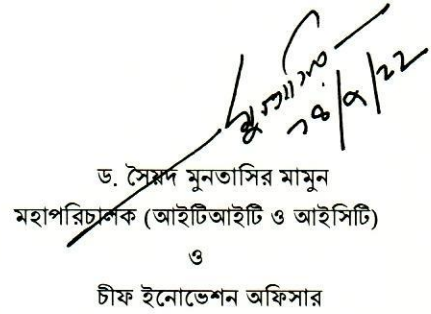 মুনতাসির
২৪/৯/২২
ড. সৈয়দ মুনতাসির মামুন
মহাপরিচালক (আইটিআইটি ও আইসিটি)
ও
চীফ ইনোভেশন অফিসার